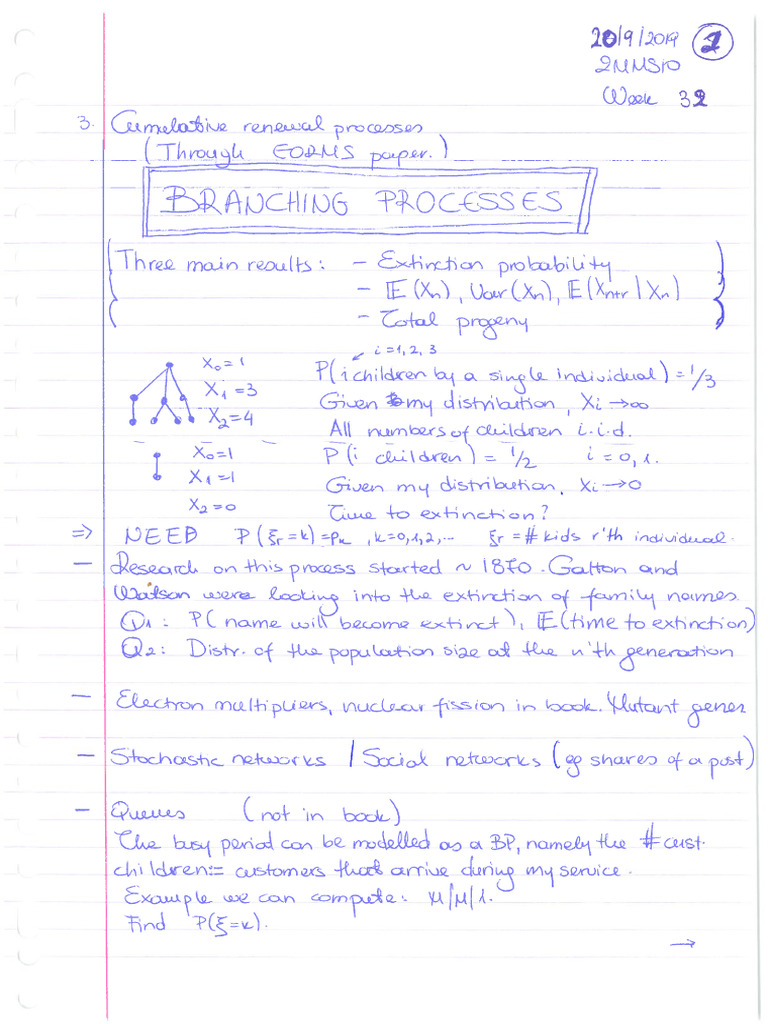 20/9/2019 1
2MMS10
Week 32
3. Cumulative renewal processes
(Through EORMS paper.)
BRANCHING PROCESSES
(Three main results: - Extinction probability)
- 𝔼(Xn), Var(Xn), 𝔼(Xn+r | Xn)
- Total progeny
i=1, 2, 3
X0=1 P(i children by a single individual) = 1/3
X1=3 Given my distribution, Xi→∞
X2=4 All numbers of children i.i.d.
X0=1 P(i children) = 1/2 i=0,1.
X1=1 Given my distribution, Xi→0
X2=0 Time to extinction?
⇒ NEED P(ξr=k)=pk, k=0,1,2,... ξr = # kids r'th individual.
- Research on this process started ~ 1870. Galton and
Watson were looking into the extinction of family names.
Q1: P(name will become extinct), 𝔼(time to extinction)
Q2: Distr. of the population size at the n'th generation
- Electron multipliers, nuclear fission in book. Mutant genes
- Stochastic networks / Social networks (eg shares of a post)
- Queues (not in book)
The busy period can be modelled as a BP, namely the # cust.
children:= customers that arrive during my service.
Example we can compute: M/M/1.
Find P(ξ=k).
→